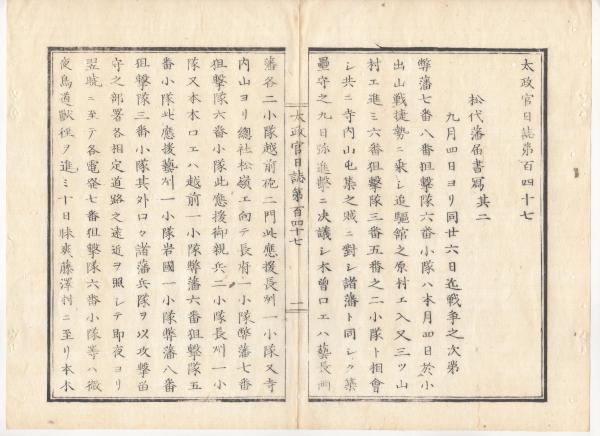 太政官日誌第百四十七
松代藩届書寫其二
九月四日ヨリ同廿六日迄戰爭之次第
弊藩七番八番狙擊隊六番小隊ハ本月四日於小
出山戰捷勢ニ乘シ追驅館之原村エ入又三ツ山
村エ進ミ六番狙擊隊三番五番之二小隊ト相會
シ共ニ寺内山屯集之賊ニ對シ諸藩ト同シク築
壘守之九日弥進擊ニ决議シ木曽口エハ藝長兩
太政官日誌第百四十七
一
藩各二小隊越前砲二門此應援長州一小隊又寺
内山ヨリ總社松嶺エ向テ長府一小隊弊藩七番
狙擊隊六番小隊此應援御親兵二小隊長州一小
隊又本木口エハ越前一小隊弊藩六番狙擊隊五
番小隊此應援藝州一小隊岩國一小隊弊藩八番
狙擊隊三番小隊其外口々諸藩兵隊ヲ以攻擊留
守之部署各相定道路之遠近ヲ照シテ即夜ヨリ
翌曉ニ至テ各電發七番狙擊隊六番小隊等ハ微
夜鳥道獸徑ヲ進ミ十日昧爽藤澤村ニ至リ本木